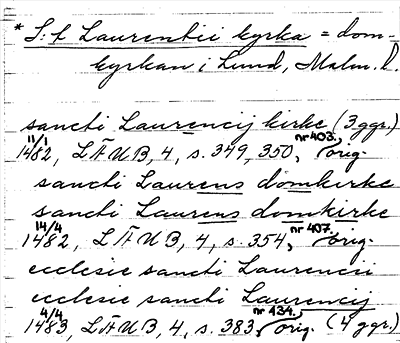 * S:t Laurentii kyrka = dom-
kyrkan i Lund, Malm. l.
sancti Laurencij kirke (3 ggr.)
11/1 1482, LÄUB, 4, s. 349, 350, nr 403. orig.
sancti Laurens domkirke
sancti Laurens domkirke
14/4 1482, LÄUB, 4, s. 354, nr 407. orig.
ecclesie sancti Laurencii
ecclesie sancti Laurencij
4/4 1483, LÄUB, 4, s. 383, nr 434. orig. (4 ggr.)